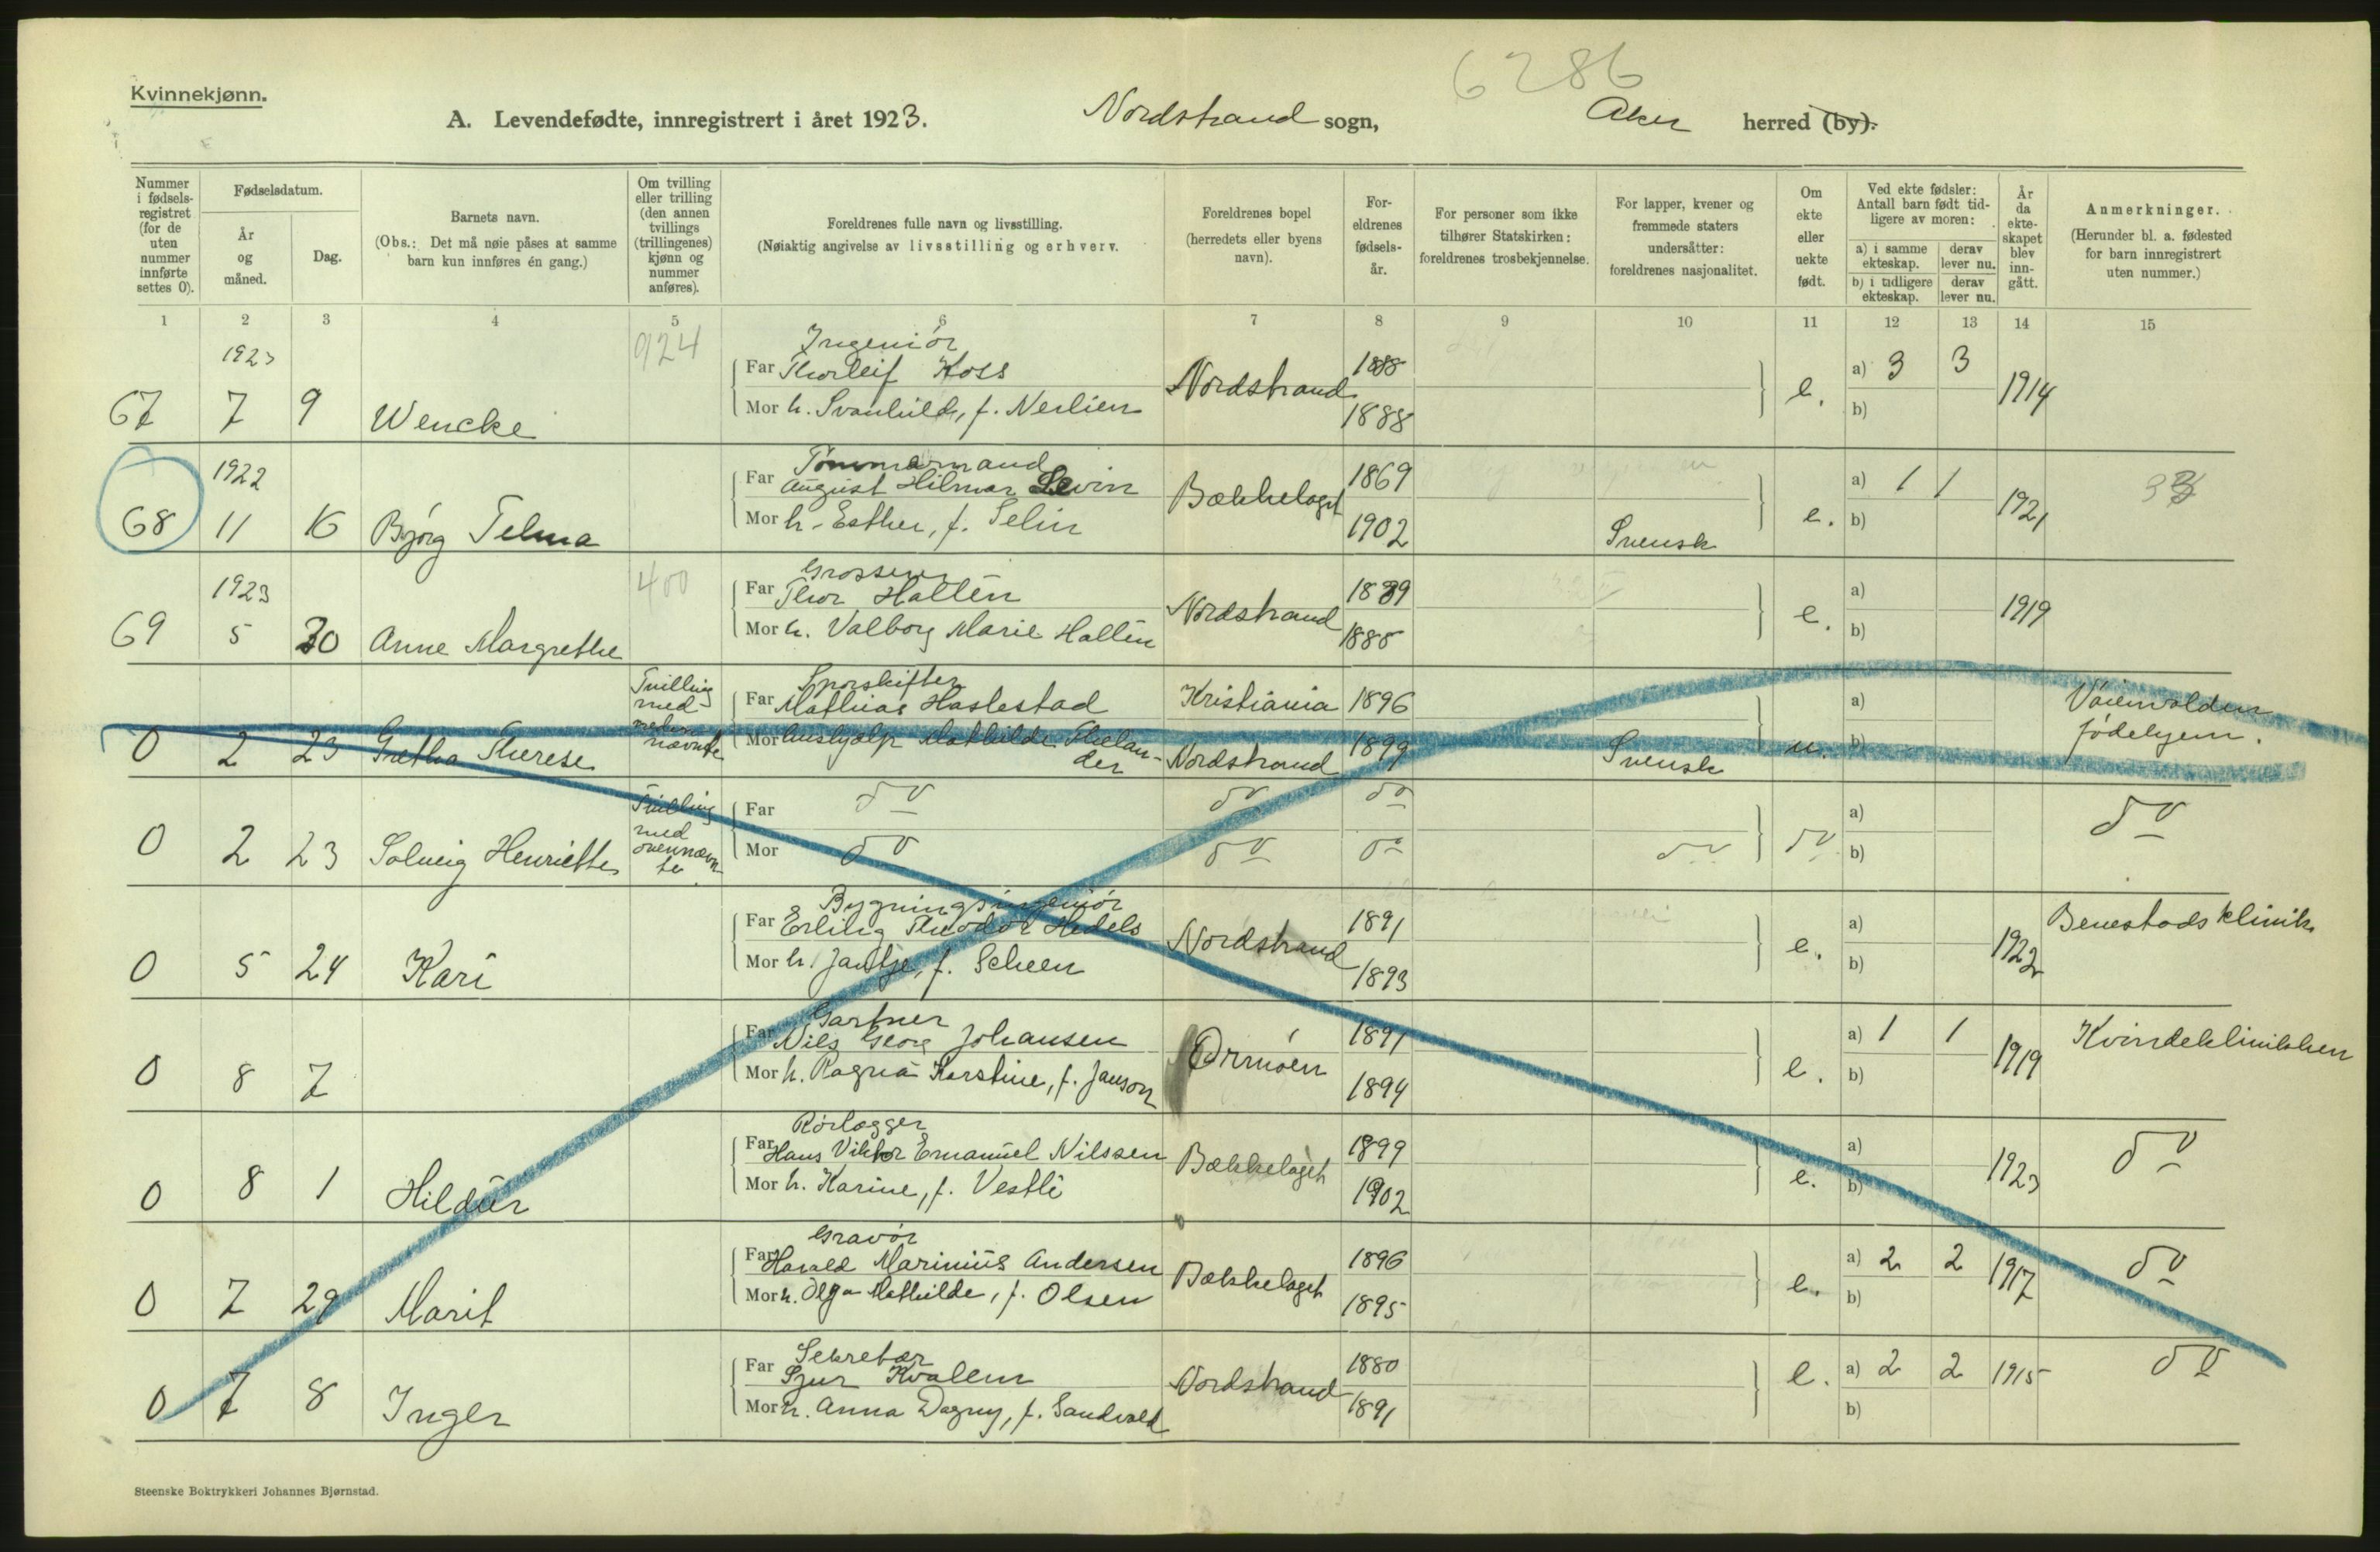 6286
Kvinnekjønn.
A. Levendefødte, innregistrert i året 1923. Nordstrand sogn, Aker herred (by).
Nummer i fødsels-registret (for de uten nummer innførte settes 0).
Fødselsdatum.
År og måned.
Dag.
Barnets navn.
(Obs.: Det må nøie påses at samme barn kun innføres én gang.)
Om tvilling eller trilling (den annen tvillings (trillingenes) kjønn og nummer anføres).
Foreldrenes fulle navn og livsstilling.
(Nøiaktig angivelse av livsstilling og erhverv.
Foreldrenes bopel (herredets eller byens navn).
For-eldrenes fødsels-år.
For personer som ikke tilhører Statskirken: foreldrenes trosbekjennelse.
For lapper, kvener og fremmede staters undersåtter: foreldrenes nasjonalitet.
Om ekte eller uekte født.
Ved ekte fødsler: Antall barn født tid-ligere av moren:
a) i samme ekteskap. derav lever nu.
b) i tidligere ekteskap. derav lever nu.
År da ekte-skapet blev inn-gått.
Anmerkninger.
(Herunder bl. a. fødested for barn innregistrert uten nummer.)
1 2 3 4 5 6 7 8 9 10 11 12 13 14 15
1923 924 Ingeniör
Far Thorleif Koss 1888 a) 3 3
67 7 9 Wencke Mor h. Svanhild, f. Nerlien Nordstrand 1888 e. b) 1914
1922 Tömmermand
Far August Hilmar Levin 1869 a) 1 1
68 11 16 Björg Telma Mor h. Esther, f. Selin Bækkelaget 1902 Svensk e. b) 1921
1923 400 Grosserer
Far Thor Hallén 1889 a)
69 5 30 Anne Margrethe Mor h. Valborg Marie Hallén Nordstrand 1885 e. b) 1919
Tvilling med nedennævnte Sporskifter
Far Mathias Haslestad Kristiania 1896 a)
0 2 23 Gretha Therese Mor hushjælp Mathilde Thelander Nordstrand 1899 Svensk u. b) födehjem.
Tvilling med ovennævnte
Far do do do a)
0 2 23 Solveig Henriette Mor do do do do do b) do
Bygningsingeniör
Far Erling Theodor Hedels 1891 a)
0 5 24 Kari Mor h. Jantje, f. Scheen Nordstrand 1893 e. b) 1922 Benestads klinik
Gartner
Far Nils Georg Johansen 1891 a) 1 1
0 8 7 Mor h. Ragna Karstine, f. Janson Ormöen 1894 e. b) 1919 Kvindeklinikken
Rörlægger
Far Hans Viktor Emanuel Nilssen 1899 a)
0 8 1 Hildur Mor h. Karine, f. Vestli Bækkelaget 1902 e. b) 1923 do
Gravör
Far Harald Marinius Andersen 1896 a) 2 2
0 7 29 Marit Mor h. Olga Mathilde, f. Olsen Bækkelaget 1895 e. b) 1917 do
Sekretær
Far Sjur Kvalem 1880 a) 2 2
0 7 8 Inger Mor h. Anna Dagny, f. Sandvold Nordstrand 1891 e. b) 1915 do
Steenske Boktrykkeri Johannes Bjørnstad.